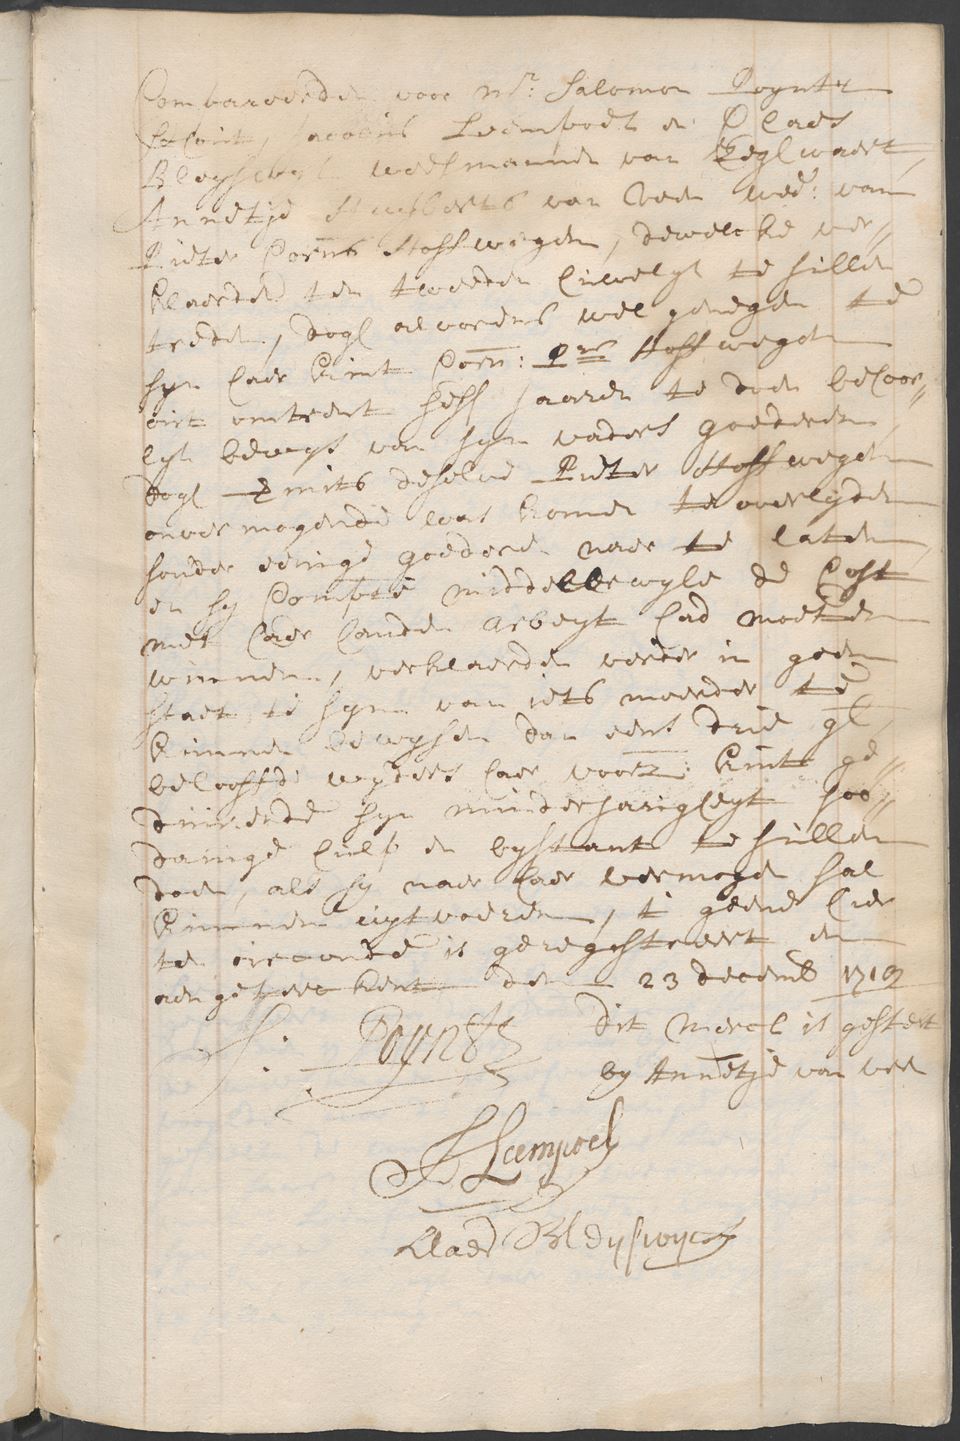 Compareerden voor Mr: Salomon Poynts
Schout, Jacobus Leempoel en Claes
Bleyswyk weesmannen van Segwaert,
Annetje Huyberts van Veen wed: van
Pieter Corns Hoffwegen, dewelcke ver„
klaerden ten tweeden huwelyk te sullen
treden, dogh alvorens wel genegen te
syn haer kint Corn: Prs Hoffwegen
out omtrent ses jaaren te doen behoor„
lyk bewys van syn vaders goederen,
dogh mits deselve Pieter Hoffwegen
onvermogende was komen te overlyden
sonder eenige goederen naer te laten,
en sy Compte middellerwyle de Cost
met haer handen arbeyt had moeten
winnen, verklaerden verder in geen
staet te syn van iets meerder te
kunnen bewysen dan eens drie gl,
belooffde wyders haer voorz: kint ge„
duirende syn minderjarigheyt soo„
danige hulp en bystant te sullen
doen, als sy naer haer vermogen sal
kunnen uytvoeren, 't geene hier
ter oirconde is geregistreert en
aengeteeckent den 23 decemb 1719
S. Poynts
dit merck is gestelt
by Annetje van veen
J Leempoel
Klaes Bleyswyck